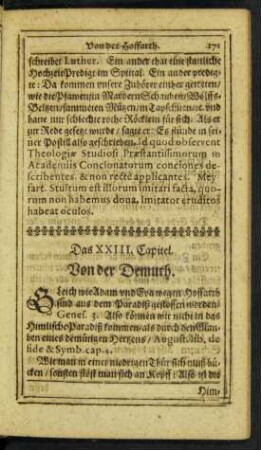 Von der Hoffarth. 171
schreibet Luther. Ein ander that eine stattliche
Hochzeit Predigt im Spital. Ein ander predig-
te: Da kommen unsere Zuhörer einher getretten/
wie die Pfawen/in Mardern Schauben/Wolffs-
Beltzen/sammeten Mützen/in
hatte nur schlechte rothe Röcklein für sich. Als er
zur Rede gesetzt wurde / sagte er: Es stünde in sei-
ner Postill also geschrieben. id quod observent
Theologiæ Studiosi Præstantissimorum in
Academiis Concionatorum conciones de-
scribentes, & non rectè applicantes. Mey-
fart. Stultum est illorum imitari facta, quo-
rum non habemus dona. Imitator eruditos
habeat oculos.
Das XXIII. Capitel.
Von der Demuth.
Gleich wie Adam und Eva wegen Hoffarth
sind aus dem Paradiß gestossen worden/
Genes. 3. Also können wir nicht in das
Himlische Paradiß kommen/als durch den Glau-
ben eines demütigen Hertzens / August. lib. de
fide & Symb. cap. 4.
Wie man in einer niedrigen Thür sich muß bü-
cken / sonsten stöst man sich an Kopff: Also ist die
Him-